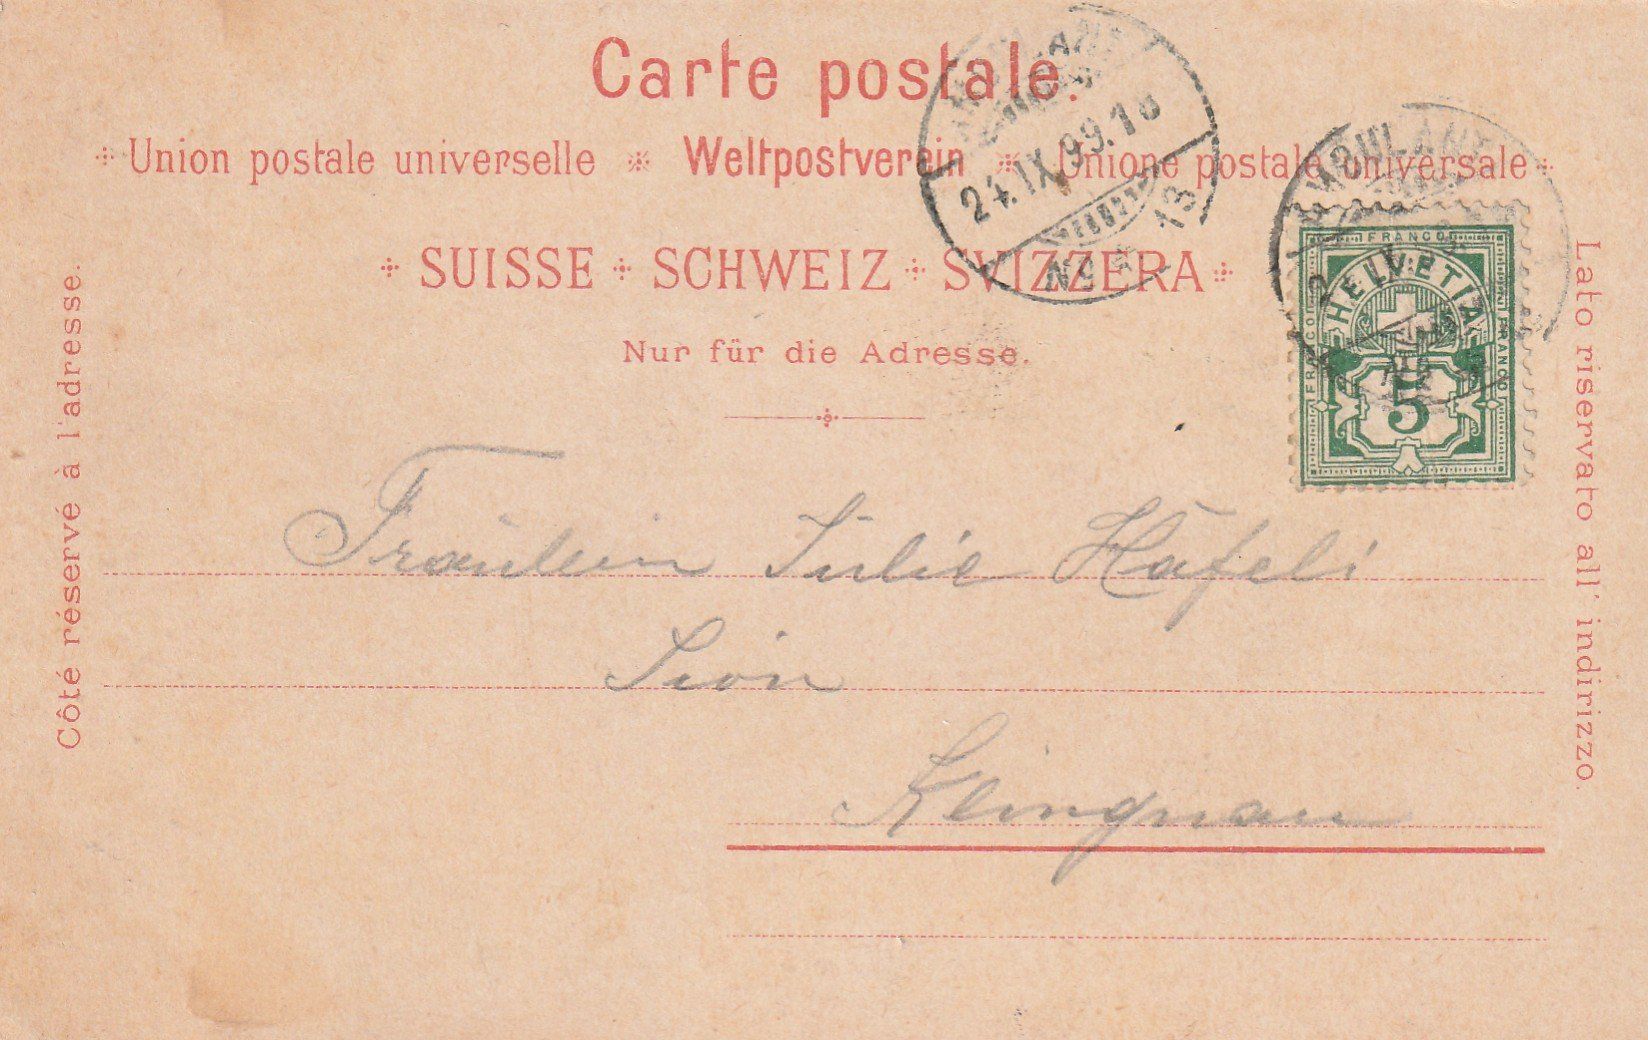 Carte postale.
Union postale universelle Weltpostverein Unione postale universale
SUISSE SCHWEIZ SVIZZERA
Nur für die Adresse.
Côté réservé à l'adresse.
Lato riservato all' indirizzo.
24.IX.99.18
No 13
AMBULANT
FRANCO
HELVETIA
FRANCO
FRANCO
5
Fräulein Julie Häfeli
Sion
Klingnau